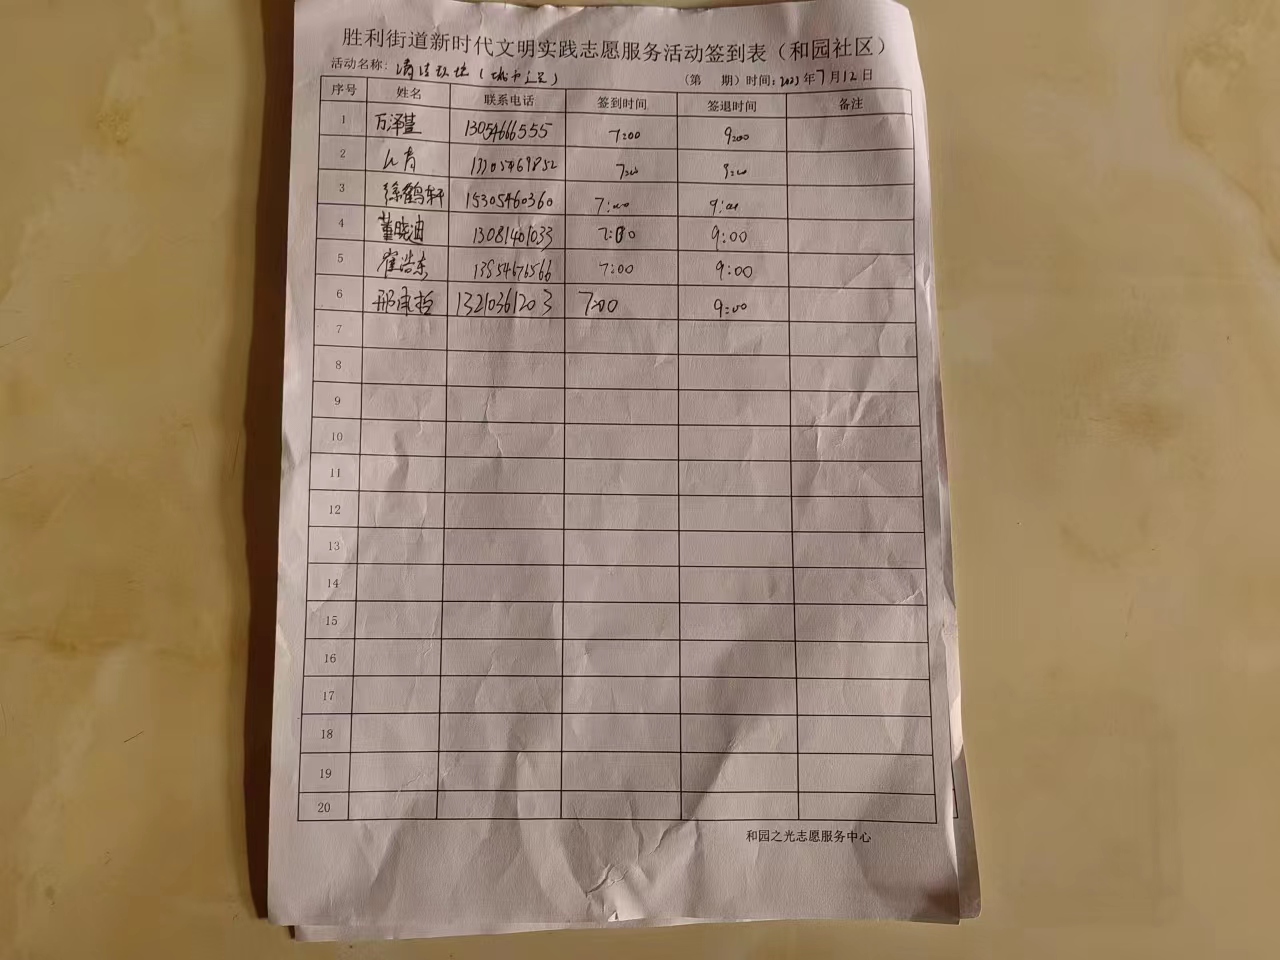 胜利街道新时代文明实践志愿服务活动签到表（和园社区）
活动名称：清洁 （城市 ） （第 期）时间：2023年7月12日
序号 姓名 联系电话 签到时间 签退时间 备注
1 万泽慧 13054666555 7:00 9:00
2 13305469852 7:00 9:00
3 徐鹤轩 15305460360 7:00 9:00
4 董晓迪 13081401033 7:00 9:00
5 崔浩东 13954676566 7:00 9:00
6 邢承哲 13210361203 7:00 9:00
7
8
9
10
11
12
13
14
15
16
17
18
19
20
和园之光志愿服务中心